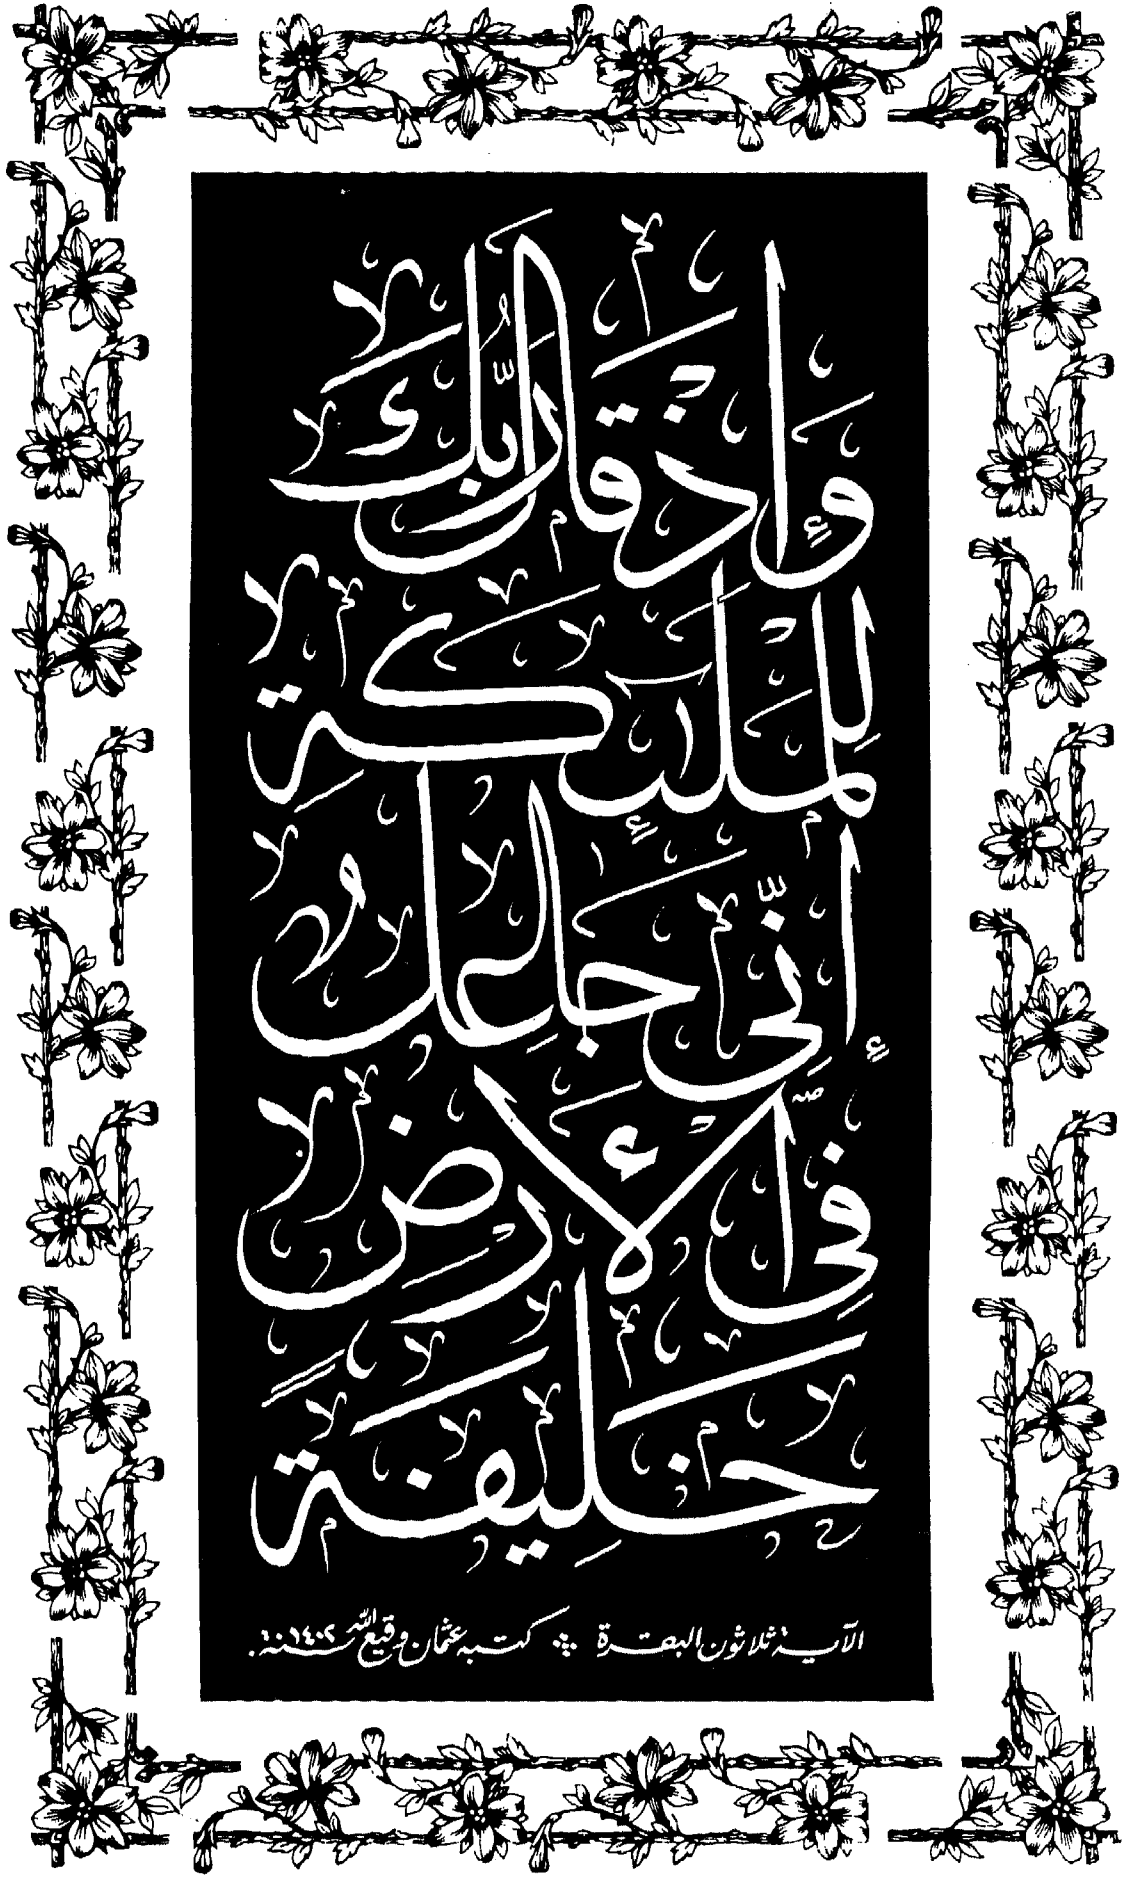 وَإِذْ قَالَ رَبُّكَ
لِلْمَلٰٓئِكَةِ
إِنِّي جَاعِلٌ
فِي الْأَرْضِ
خَلِيفَةً
الآية ثلاثون البقرة كتبه عثمان وقيع الله سنة ١٤٠٢